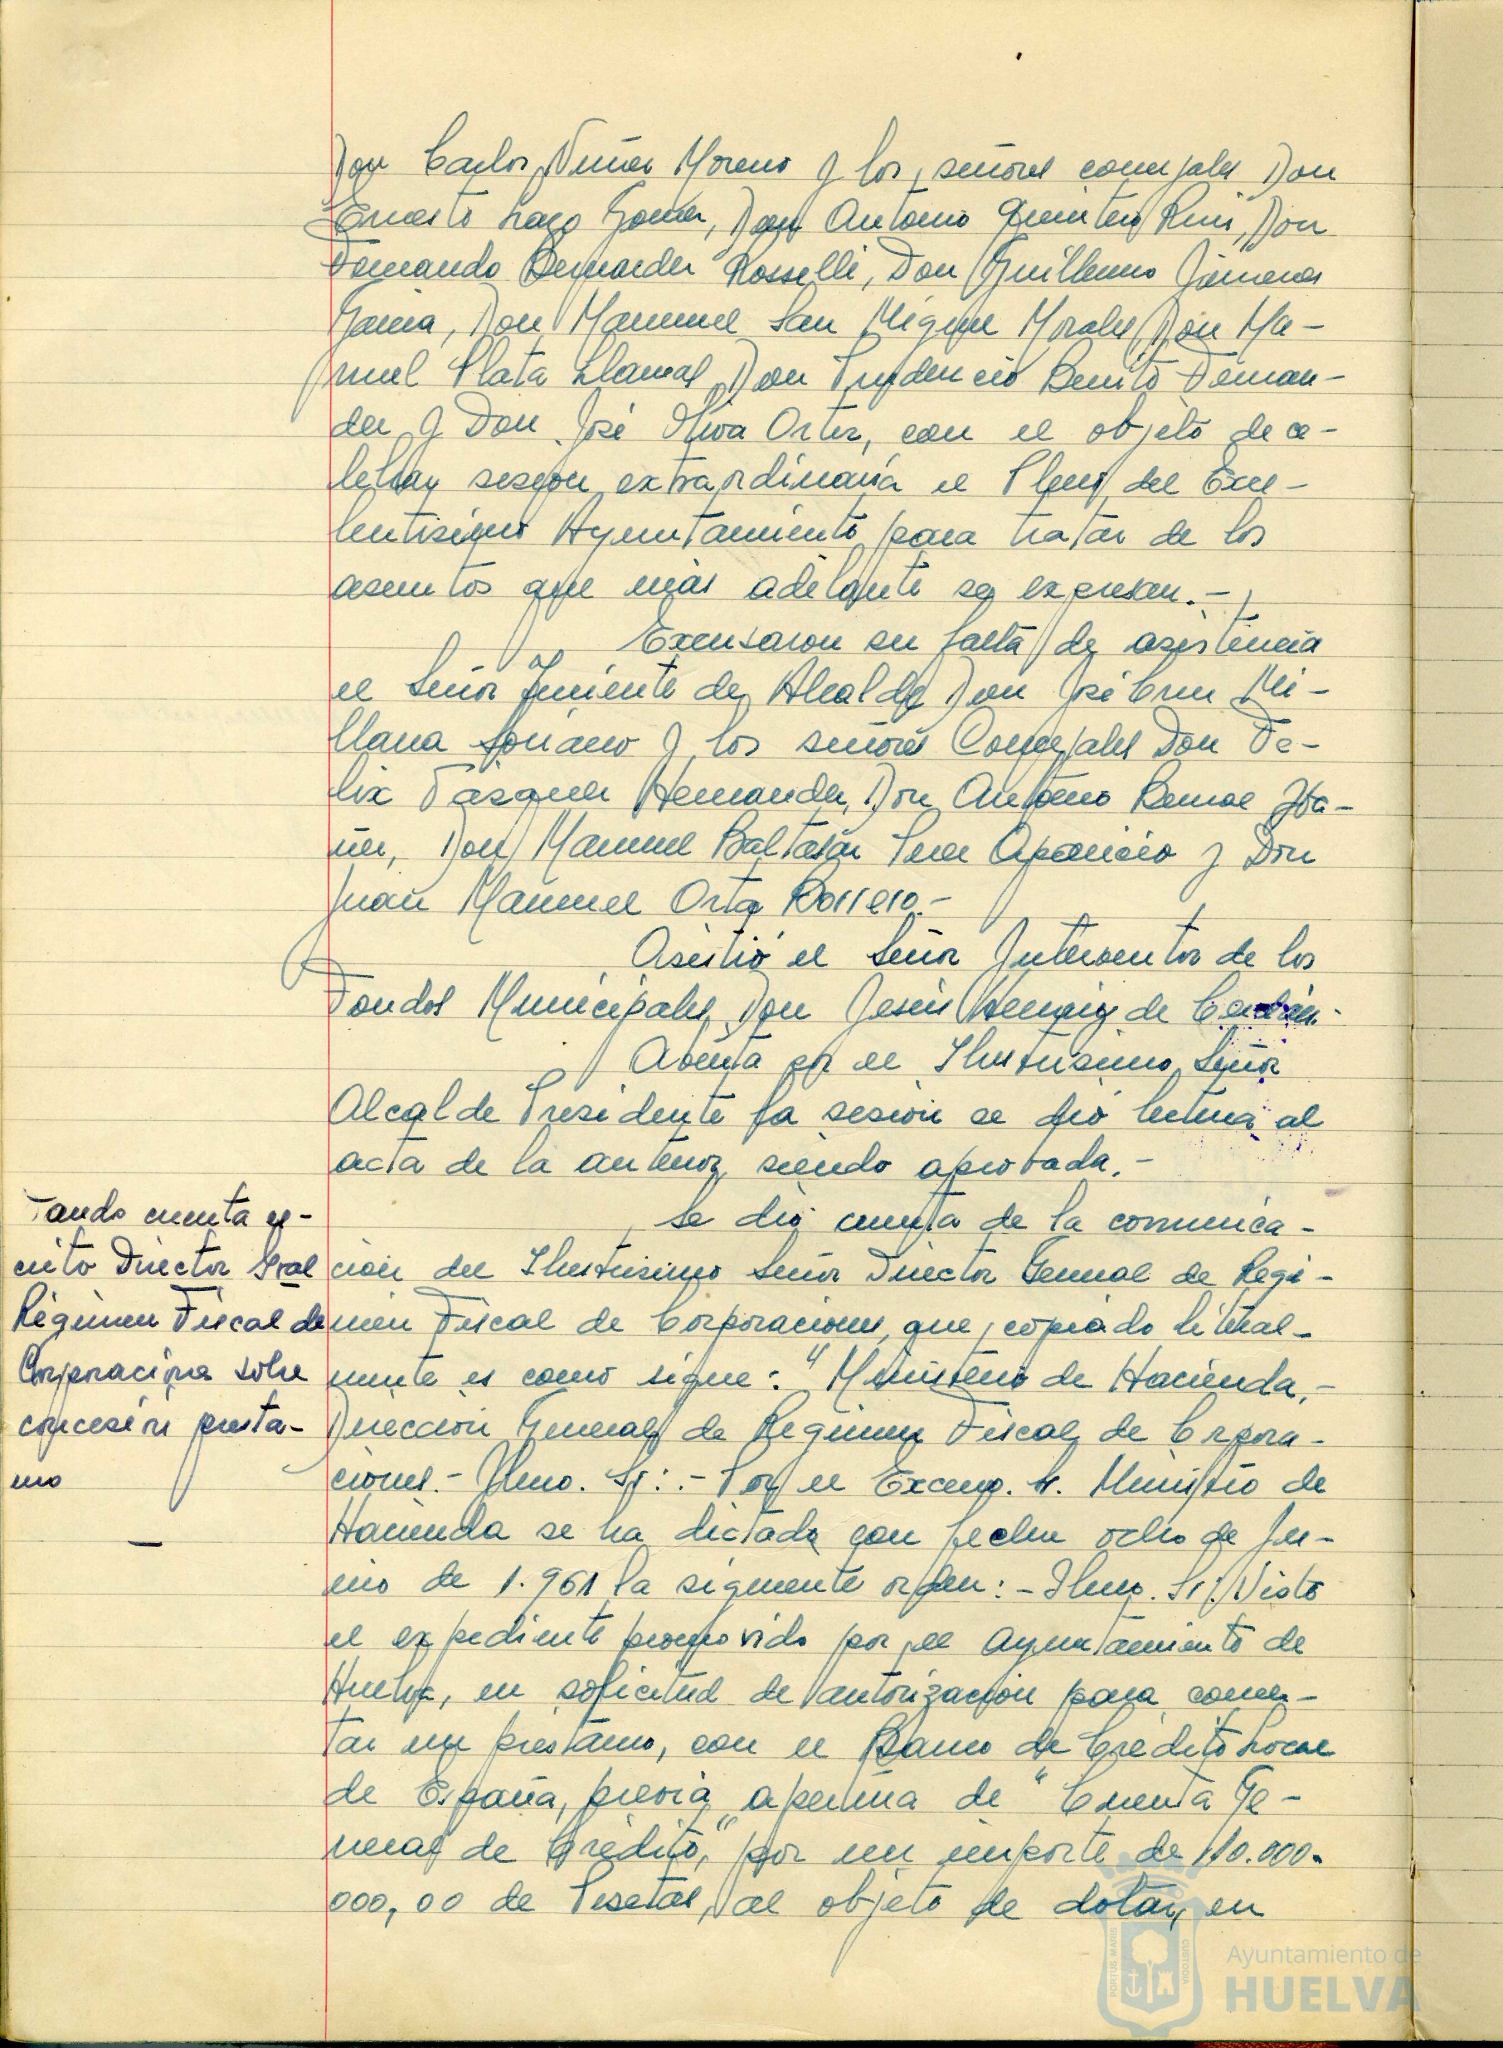 Don Carlos Nuñez Moreno y los señores concejales Don
Ernesto Lazo Gomez, Don Antonio Quintero Ruiz, Don
Fernando Bernardez Rosselli, Don Guillermo Jimenez
Garcia, Don Manuel San Miguel Morales, Don Ma-
nuel Plata Llamas, Don Prudencio Benito Fernan-
dez y Don José Oliva Ortiz, con el objeto de ce-
lebrar sesión extraordinaria el Pleno del Exce-
lentisimo Ayuntamiento para tratar de los
asuntos que más adelante se expresan.-
Excusaron su falta de asistencia
el Señor Teniente de Alcalde Don José Cruz Mi-
llana Soriano y los señores Concejales Don Fe-
lix Vázquez Hernandez, Don Antonio Bernal Iba-
ñez, Don Manuel Baltasar Perez Aparicio y Don
Juan Manuel Orta Borrero.-
Asistió el Señor Interventor de los
Fondos Municipales, Don Jesús de
Abierta por el Ilustrisimo Señor
Alcalde Presidente la sesión se dió lectura al
acta de la anterior, siendo aprobada.-
Dando cuenta es-
crito Director Gral
Régimen Fiscal de
Corporaciones sobre
concesión présta-
mo
Se dió cuenta de la comunica-
ción del Ilustrisimo Señor Director General de Régi-
men Fiscal de Corporaciones, que, copiado literal-
mente es como sigue: "Ministerio de Hacienda.-
Dirección General de Regimen Fiscal de Corpora-
ciones.- Ilmo. Sr:.- Por el Excmo. Sr. Ministro de
Hacienda se ha dictado con fecha ocho de Ju-
nio de 1.961 la siguiente orden:- Ilmo. Sr: Visto
el expediente promovido por el Ayuntamiento de
Huelva, en solicitud de autorización para concer-
tar un préstamo, con el Banco de Crédito Local
de España, previa apertura de "Cuenta Ge-
neral de Crédito," por un importe de 110.000.
000,00 de Pesetas, al objeto de dotar, en
PORTUS MARIS
CUSTODIA
Ayuntamiento de
HUELVA